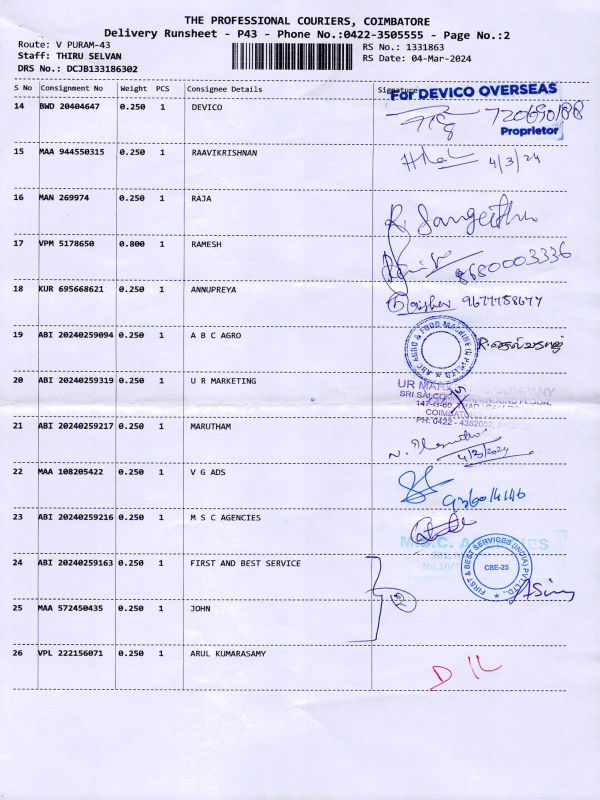 THE PROFESSIONAL COURIERS, COIMBATORE
Delivery Runsheet - P43 - Phone No.:0422-3505555 - Page No.:2
Route: V PURAM-43 RS No.: 1331863
Staff: THIRU SELVAN RS Date: 04-Mar-2024
DRS No.: DCJB133186302
S No Consignment No Weight PCS Consignee Details Signature
For DEVICO OVERSEAS
14 BWD 20404647 0.250 1 DEVICO
Proprietor
15 MAA 944550315 0.250 1 RAAVIKRISHNAN 4/3/24
16 MAN 269974 0.250 1 RAJA R. Sangeetha
17 VPM 5178650 0.800 1 RAMESH 8680003336
18 KUR 695668621 0.250 1 ANNUPREYA
19 ABI 20240259094 0.250 1 A B C AGRO ABC AGRO & FOOD MACHINE (I) PVT LTD
20 ABI 20240259319 0.250 1 U R MARKETING
UR COMPANY
FLOOR,
COIMBATORE
PH: 0422 - 4382082,
21 ABI 20240259217 0.250 1 MARUTHAM
4/3/2024
22 MAA 108205422 0.250 1 V G ADS
23 ABI 20240259216 0.250 1 M S C AGENCIES
M.S.C. AGENCIES
24 ABI 20240259163 0.250 1 FIRST AND BEST SERVICE FIRST & BEST SERVICES (INDIA) PVT. LTD., CBE-25
25 MAA 572450435 0.250 1 JOHN
26 VPL 222156071 0.250 1 ARUL KUMARASAMY
D IL